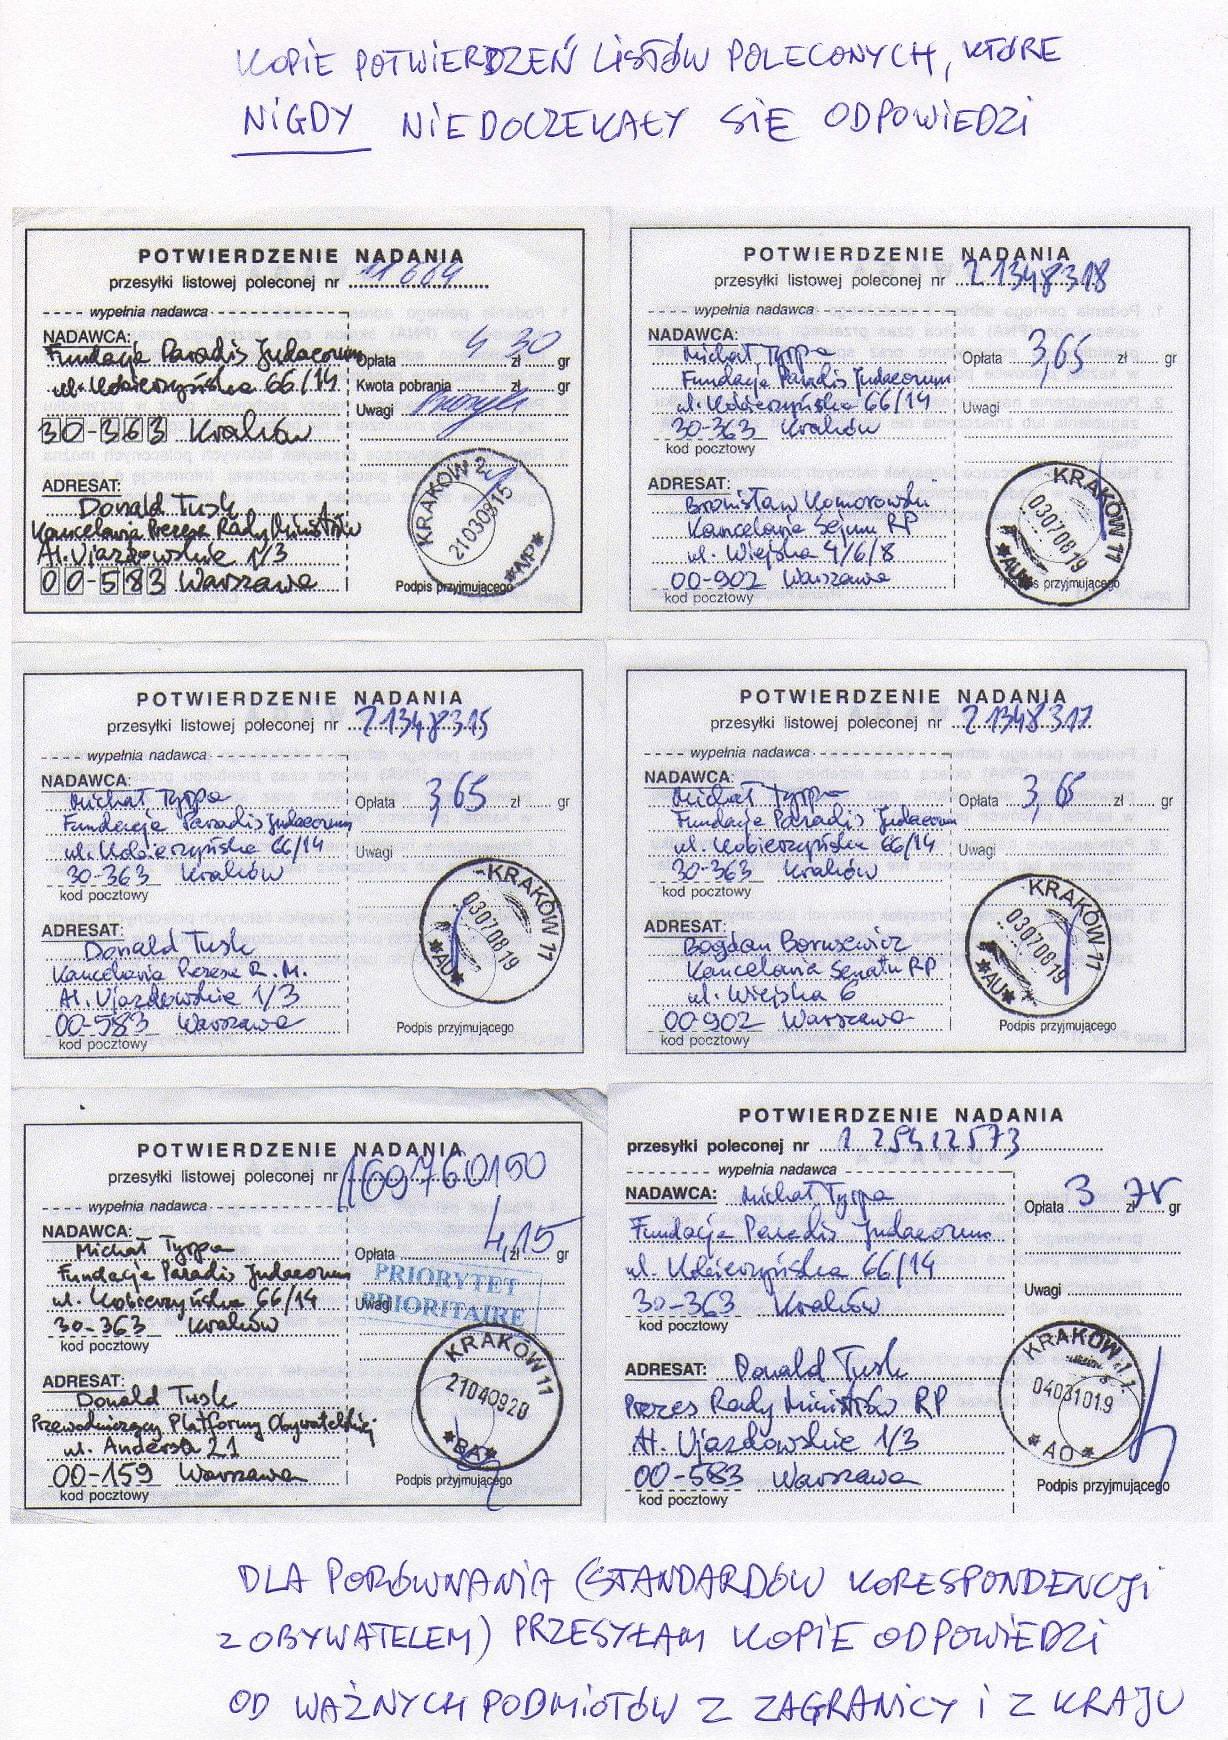 KOPIE POTWIERDZEŃ LISTÓW POLECONYCH, KTÓRE
NIGDY NIEDOCZEKAŁY SIĘ ODPOWIEDZI
POTWIERDZENIE NADANIA
przesyłki listowej poleconej nr 11 604
wypełnia nadawca
NADAWCA:
Fundacja Paradis Judaeorum
ul. Kobierzyńska 66/14
30-363 Kraków
Opłata 4 30 zł gr
Kwota pobrania zł gr
Uwagi
ADRESAT:
Donald Tusk
Kancelaria Prezesa Rady Ministrów
Al. Ujazdowskie 1/3
00-583 Warszawa
KRAKÓW 2
21030815
*AP*
Podpis przyjmującego
POTWIERDZENIE NADANIA
przesyłki listowej poleconej nr 21348318
wypełnia nadawca
NADAWCA:
Michał Tyrpa
Fundacja Paradis Judaeorum
ul. Kobierzyńska 66/14
30-363 Kraków
kod pocztowy
Opłata 3,65 zł gr
Uwagi
ADRESAT:
Bronisław Komorowski
Kancelaria Sejmu RP
ul. Wiejska 4/6/8
00-902 Warszawa
kod pocztowy
KRAKÓW 11
03070819
*AU*
Podpis przyjmującego
POTWIERDZENIE NADANIA
przesyłki listowej poleconej nr 21348315
wypełnia nadawca
NADAWCA:
Michał Tyrpa
Fundacja Paradis Judaeorum
ul. Kobierzyńska 66/14
30-363 Kraków
kod pocztowy
Opłata 3 65 zł gr
Uwagi
ADRESAT:
Donald Tusk
Kancelaria Prezesa R.M.
Al. Ujazdowskie 1/3
00-583 Warszawa
kod pocztowy
KRAKÓW 11
03070819
*AU*
Podpis przyjmującego
POTWIERDZENIE NADANIA
przesyłki listowej poleconej nr 21348317
wypełnia nadawca
NADAWCA:
Michał Tyrpa
Fundacja Paradis Judaeorum
ul. Kobierzyńska 66/14
30-363 Kraków
kod pocztowy
Opłata 3,65 zł gr
Uwagi
ADRESAT:
Bogdan Borusewicz
Kancelaria Senatu RP
ul. Wiejska 6
00-902 Warszawa
kod pocztowy
KRAKÓW 11
03070819
*AU*
Podpis przyjmującego
POTWIERDZENIE NADANIA
przesyłki listowej poleconej nr 169760150
wypełnia nadawca
NADAWCA:
Michał Tyrpa
Fundacja Paradis Judaeorum
ul. Kobierzyńska 66/14
30-363 Kraków
kod pocztowy
Opłata 4,15 zł gr
PRIORYTET
PRIORITAIRE
Uwagi
ADRESAT:
Donald Tusk
Przewodniczący Platformy Obywatelskiej
ul. Andersa 21
00-159 Warszawa
kod pocztowy
KRAKÓW 11
21040920
*BA*
Podpis przyjmującego
POTWIERDZENIE NADANIA
przesyłki poleconej nr 1 254 12573
wypełnia nadawca
NADAWCA: Michał Tyrpa
Fundacja Paradis Judaeorum
ul. Kobierzyńska 66/14
30-363 Kraków
kod pocztowy
Opłata 3 zł gr
Uwagi
ADRESAT: Donald Tusk
Prezes Rady Ministrów RP
Al. Ujazdowskie 1/3
00-583 Warszawa
kod pocztowy
KRAKÓW 11
04031019
*AO*
Podpis przyjmującego
DLA PORÓWNANIA (STANDARDÓW KORESPONDENCJI
Z OBYWATELEM) PRZESYŁAM KOPIE ODPOWIEDZI
OD WAŻNYCH PODMIOTÓW Z ZAGRANICY I Z KRAJU